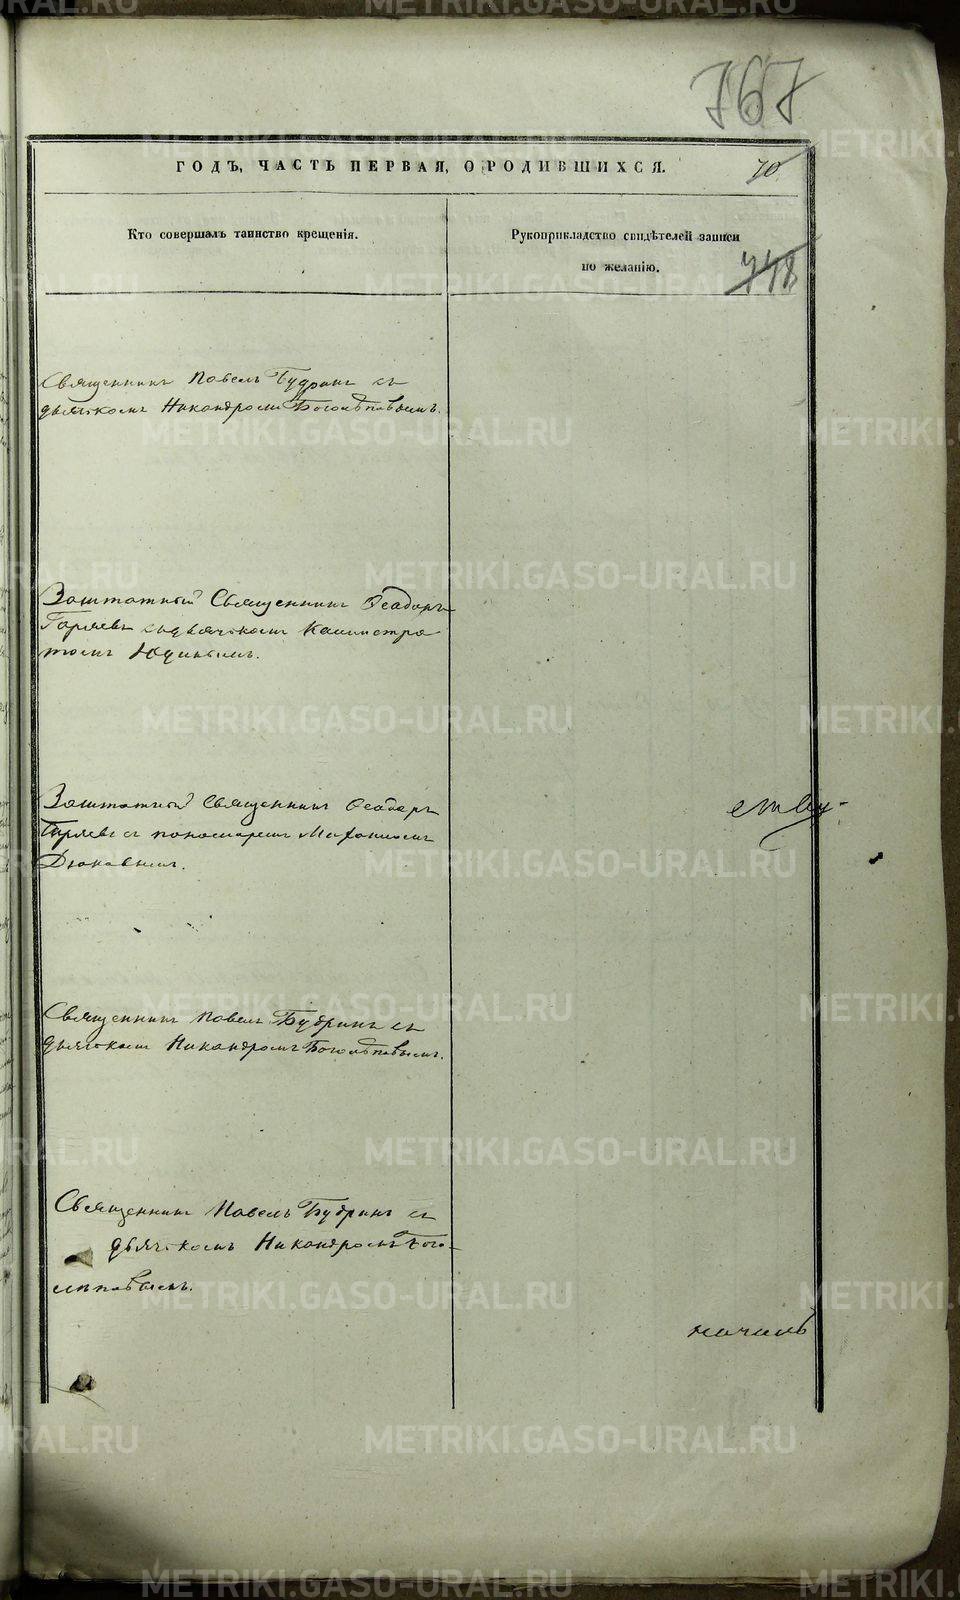 767
ГОДЪ, ЧАСТЬ ПЕРВАЯ, О РОДИВШИХСЯ.
70
Кто совершалъ таинство крещенія.
Рукоприкладство свидѣтелей записи
по желанію.
748
Священникъ Павелъ Будринъ съ
дьячкомъ Никандромъ Боголѣповымъ.
Заштатный Священникъ Ѳеодоръ
Горяевъ съ дьячкомъ Каллистра
томъ Юдинымъ.
Заштатный Священникъ Ѳеодоръ
Горяевъ съ пономаремъ
ству-
Священникъ Павелъ Будринъ съ
дьячкомъ Никандромъ Боголѣповымъ.
Священникъ Павелъ Будринъ съ
дьячкомъ Никандромъ Бого-
лѣповымъ.
METRIKI.GASO-URAL.RU